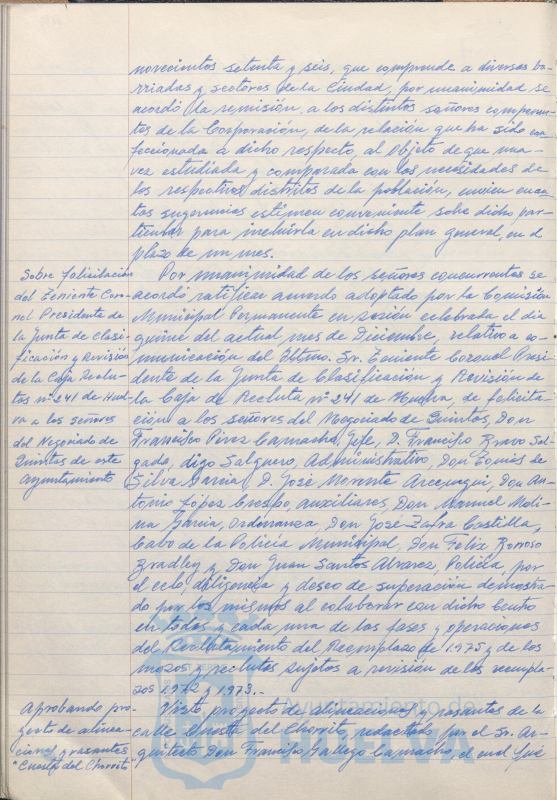 novecientos setenta y seis, que comprende a diversas ba-
rriadas y sectores de la Ciudad, por unanimidad se
acordó la remisión a los distintos señores componen-
tes de la Corporación, de la relación que ha sido con
feccionada a dicho respecto, al objeto de que una
vez estudiada y comparada con las necesidades de
los respectivos distritos de la población, envien cuan
tas sugerencias estimen conveniente sobre dicho par-
ticular para incluirla en dicho plan general, en el
plazo de un mes.
Sobre felicitación
del Teniente Coro-
nel Presidente de
la Junta de Clasi-
ficación y Revisión
de la Caja Reclu-
tas nº 241 de Huel-
va a los señores
del Negociado de
Quintas de este
Ayuntamiento
Por unanimidad de los señores concurrentes se
acordó ratificar acuerdo adoptado por la Comisión
Municipal Permanente en sesión celebrada el día
quince del actual mes de Diciembre, relativo a co-
municación del Iltmo. Sr. Teniente Coronel Presi-
dente de la Junta de Clasificación y Revisión de
la Caja de Recluta nº 241 de Huelva, de felicita-
ción a los señores del Negociado de Quintas, Don
Francisco Pérez Camacho, Jefe, D. Francisco Bravo Sal-
gado, digo Salguero, Administrativo, Don Tomás de
Silva García, D. José Morente Don An-
tonio López Crespo, auxiliares, Don Manuel Moli-
na García, Ordenanza, Don José Zafra Castilla,
Cabo de la Policía Municipal, Don Félix Borroso
Bradley y Don Juan Santos Alvarez, Policía, por
el celo, diligencia y deseo de superación demostra-
do por los mismos al colaborar con dicho Centro
en todas y cada una de las fases y operaciones
del Reclutamiento del Reemplazo de 1975 y de los
mozos y reclutas sujetos a revisión de los reempla-
zos 1972 y 1973.-
Aprobando pro-
yecto de alinea-
ciones y rasantes
"Cuesta del Chorrito"
Visto proyecto de alineaciones y rasantes de la
calle Cuesta del Chorrito, redactado por el Sr. Ar-
quitecto Don Francisco Gallego Camacho, el cual fué
HUELVA